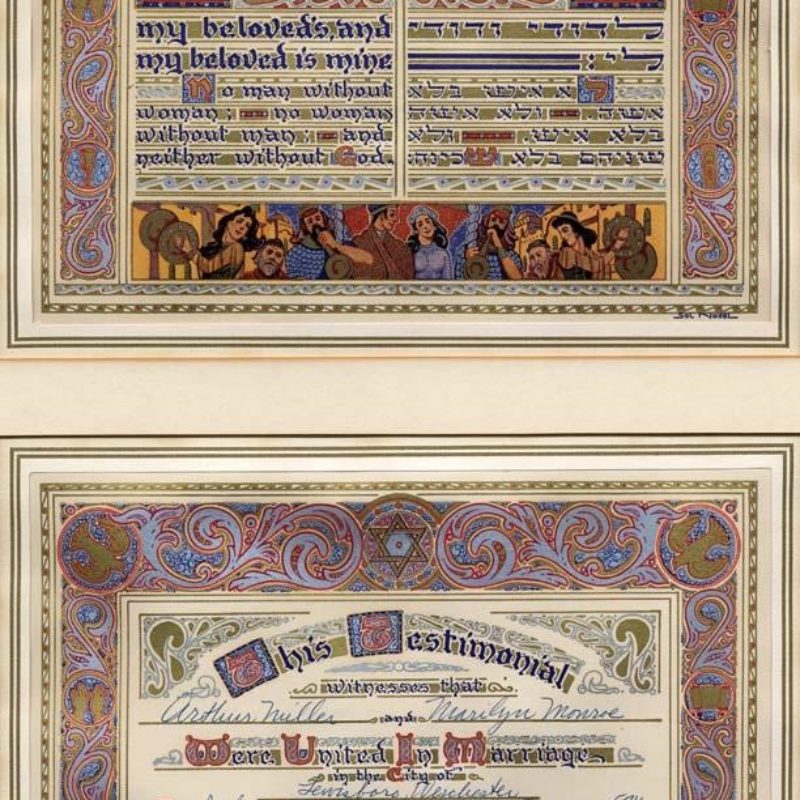 my beloved's, and
my beloved is mine
No man without
woman; — no woman
without man; — and
neither without God.
לדודי ודודי
לי:
לא איש בלא
אשה. ולא אשה
בלא איש. ולא
שניהם בלא שכינה:
Sol Nodel
This Testimonial
witnesses that
Arthur Miller and Marilyn Monroe
Were United In Marriage
in the City of
Lewisboro, Weschester